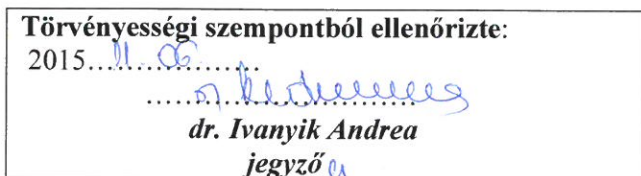 Törvényességi szempontból ellenőrizte:
2015...11.06..................
..........................................
dr. Ivanyik Andrea
jegyző